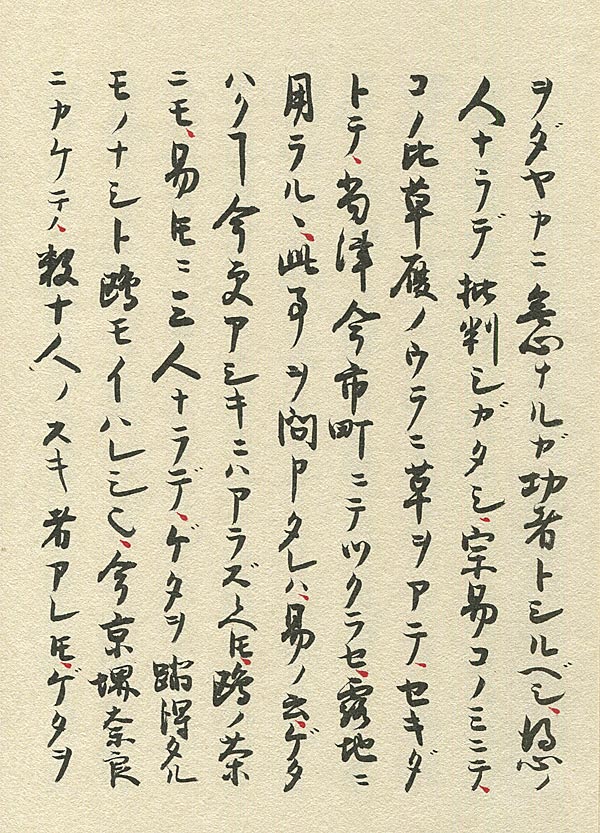 ヲダヤカニ無心ナルガ功者トシルベシ、得心ノ
人ナラデ批判シガタシ、宗易コノミニテ、
コノ比草履ノウラニ革ヲアテ、セキダ
トテ、當津今市町ニテツクラセ、露地ニ
用ラルヽ、此事ヲ問申タレハ、易ノ云、ゲタ
ハクヿ今更アシキニハアラズ候ヘ𪜈、鴎ノ茶
ニモ、易𪜈ニ三人ナラデ、ゲタヲ踏得タル
モノナシト鴎モイハレシ也、今京堺奈良
ニカケテハ、数十人ノスキ者アレ𪜈、ゲタヲ